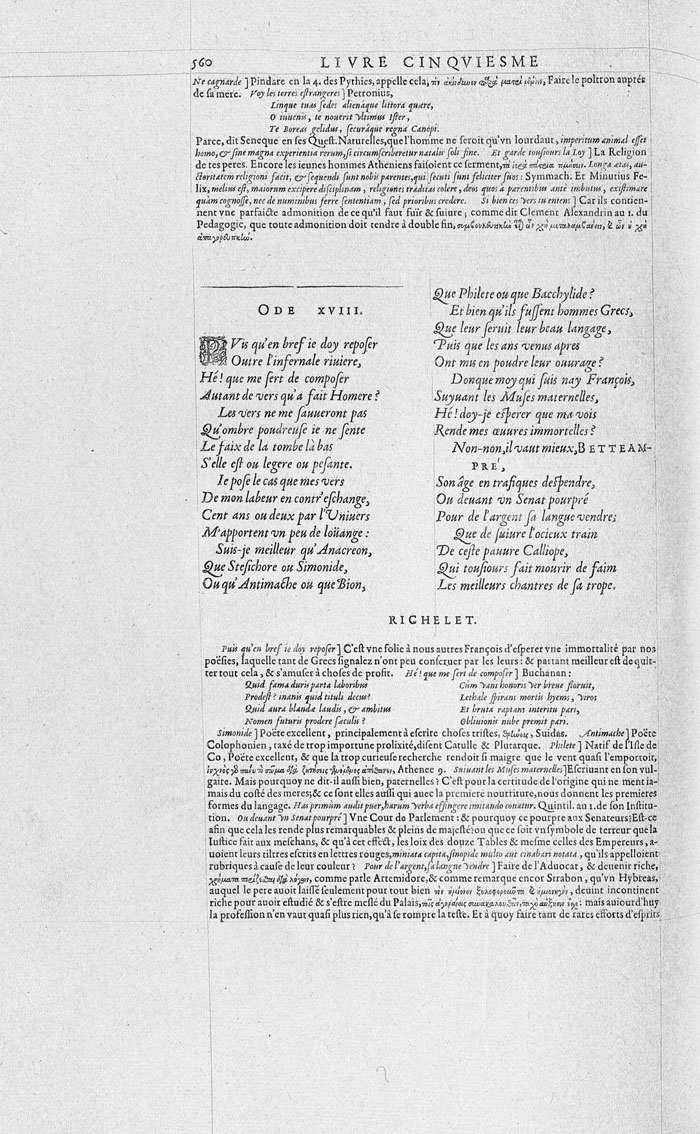 560 LIVRE CINQVIESME
Ne cagnarde ] Pindare en la 4. des Pythies, appelle cela, Faire le poltron auprés
de sa mere. Voy les terres estrangeres ] Petronius,
Linque tuas sedes alienáque littora quære,
O iuuenis, te nouerit vltimus Ister,
Te Boreas gelidus, securáque regna Canopi.
Parce, dit Seneque en ses Quest. Naturelles, que l'homme ne seroit qu'vn lourdaut, imperitum animal esset
homo, & sine magna experientia rerum, si circumscriberetur natalis soli fine. Et garde tousiours la Loy ] La Religion
de tes peres. Encore les ieunes hommes Atheniens faisoient ce serment, Longa ætas, au-
thoritatem religioni facit, & sequendi sunt nobis parentes, qui secuti sunt feliciter suos: Symmach. Et Minutius Fe-
lix, melius est, maiorum excipere disciplinam, religiones traditas colere, deos quos à parentibus ante imbutus, existimare
quàm cognosse, nec de numinibus ferre sententiam, sed prioribus credere. Si bien ces vers tu entens ] Car ils contien-
nent vne parfaicte admonition de ce qu'il faut fuir & suiure; comme dit Clement Alexandrin au 1. du
Pedagogic, que toute admonition doit tendre à double fin,
ODE XVIII.
PVis qu'en bref ie doy reposer
Outre l'infernale riuiere,
Hé! que me sert de composer
Autant de vers qu'a fait Homere?
Les vers ne me sauueront pas
Qu'ombre poudreuse ie ne sente
Le faix de la tombe là bas
S'elle est ou legere ou pesante.
Ie pose le cas que mes vers
De mon labeur en contr'eschange,
Cent ans ou deux par l'Vniuers
M'apportent vn peu de loüange:
Suis-je meilleur qu'Anacreon,
Que Stesichore ou Simonide,
Ou qu'Antimache ou que Bion,
Que Philete ou que Bacchylide?
Et bien qu'ils fussent hommes Grecs,
Que leur seruit leur beau langage,
Puis que les ans venus apres
Ont mis en poudre leur ouurage?
Donque moy qui suis nay François,
Suyuant les Muses maternelles,
Hé! doy-je esperer que ma vois
Rende mes œuures immortelles?
Non-non, il vaut mieux, BETTEAM-
PRE',
Son âge en trafiques despendre,
Ou deuant vn Senat pourpré
Pour de l'argent sa langue vendre;
Que de suiure l'ocieux train
De ceste pauure Calliope,
Qui tousiours fait mourir de faim
Les meilleurs chantres de sa trope.
RICHELET.
Puis qu'en bref ie doy reposer ] C'est vne folie à nous autres François d'esperer vne immortalité par nos
poësies, laquelle tant de Grecs signalez n'ont peu conseruer par les leurs: & partant meilleur est de quit-
ter tout cela, & s'amuser à choses de profit. Hé! que me sert de composer ] Buchanan:
Quid fama duris parta laboribus
Prodest? inanis quid tituli decus?
Quid aura blandæ laudis, & ambitus
Nomen futuris prodere sæculis?
Cùm vani honoris ver breue floruit,
Lethale spirans mortis hyems, viros
Et bruta raptans interitu pari,
Obliuionis nube premit pari.
Simonide ] Poëte excellent, principalement à escrire choses tristes, Suidas. Antimache ] Poëte
Colophonien, taxé de trop importune prolixité, disent Catulle & Plutarque. Philete ] Natif de l'Isle de
Co, Poëte excellent, & que la trop curieuse recherche rendoit si maigre que le vent quasi l'emportoit,
Athenee 9. Suiuant les Muses maternelles ] Escriuant en son vul-
gaire. Mais pourquoy ne dit-il aussi bien, paternelles? C'est pour la certitude de l'origine qui ne ment ia-
mais du costé des meres; & ce sont elles aussi qui auec la premiere nourriture, nous donnent les premieres
formes du langage. Has primùm audit puer, harum verba effingere imitando conatur. Quintil. au 1. de son Institu-
tion. Ou deuant vn Senat pourpré ] Vne Cour de Parlement: & pourquoy ce pourpre aux Senateurs? Est-ce
afin que cela les rende plus remarquables & pleins de majesté? ou que ce soit vn symbole de terreur que la
Iustice fait aux meschans, & qu'à cet effect, les loix des douze Tables & mesme celles des Empereurs, a-
uoient leurs tiltres escrits en lettres rouges, miniata capita, sinopide multo aut cinabari notata, qu'ils appelloient
rubriques à cause de leur couleur? Pour de l'argent, sa langue vendre ] Faire de l'Aduocat, & deuenir riche,
comme parle Artemidore, & comme remarque encor Strabon, qu'vn Hybreas,
auquel le pere auoit laissé seulement pour tout bien deuint incontinent
riche pour auoir estudié & s'estre meslé du Palais, : mais auiourd'huy
la profession n'en vaut quasi plus rien, qu'à se rompre la teste. Et à quoy faire tant de rares efforts d'esprits